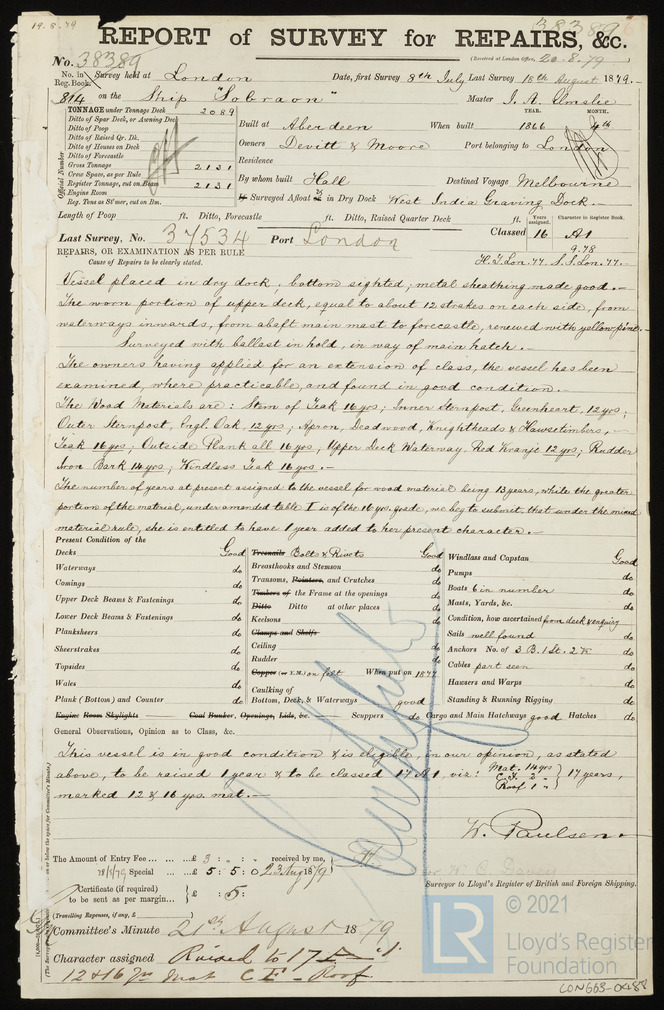 19.8.79
38389
REPORT of SURVEY for REPAIRS, &c.
No. 38389
(Received at London Office, 20.8.79
No. in Reg. Book. Survey held at London Date, first Survey 8th July Last Survey 15th August 1879.
814 on the Ship "Sobraon" Master J. A. Elmslie
TONNAGE under Tonnage Deck 2089
Ditto of Spar Deck, or Awning Deck
Ditto of Poop
Ditto of Raised Qr. Dk.
Ditto of Houses on Deck
Ditto of Forecastle
Gross Tonnage 2131
Crew Space, as per Rule
Register Tonnage, cut on Beam 2131
Engine Room
Reg. Tons as St'mer, cut on Bm.
Official Number
YEAR. MONTH.
Built at Aberdeen When built 1866 4th
Owners Devitt & Moore Port belonging to London
Residence
By whom built Hall Destined Voyage Melbourne
If Surveyed Afloat or in Dry Dock West India Graving Dock.
Length of Poop ft. Ditto, Forecastle ft. Ditto, Raised Quarter Deck ft.
Years assigned. Character in Register Book.
Last Survey, No. 37534 Port London Classed 16 A1
9.78
REPAIRS, OR EXAMINATION AS PER RULE H.T. Lon. 77. S.S. Lon. 77.
Cause of Repairs to be clearly stated.
Vessel placed in dry dock, bottom sighted, metal sheathing made good.
The worn portion of upper deck, equal to about 12 strakes on each side, from
waterways inwards, from abaft main mast to forecastle, renewed with yellow pine.
Surveyed with ballast in hold, in way of main hatch.
The owners having applied for an extension of class, the vessel has been
examined, where practicable, and found in good condition.
The Wood Materials are: Stem of Teak 16 yrs; Inner Sternpost, Greenheart, 12 yrs;
Outer Sternpost, Engl. Oak, 12 yrs; Apron, Deadwood, Knightheads & Hawsetimbers,
Teak 16 yrs; Outside Plank all 16 yrs, Upper Deck Waterway Red Kranje 12 yrs; Rudder
Iron Bark 14 yrs; Windlass Teak 16 yrs.
The number of years at present assigned to the vessel for wood material being 13 years, while the greater
portion of the material, under amended table I is of the 16 yrs. grade, we beg to submit that under the mixed
material rule, she is entitled to have 1 year added to her present character.
Present Condition of the
Decks Good
Waterways do
Comings do
Upper Deck Beams & Fastenings do
Lower Deck Beams & Fastenings do
Planksheers do
Sheerstrakes do
Topsides do
Wales do
Plank (Bottom) and Counter do
Engine Room Skylights Coal Bunker, Openings, Lids, &c.
Treenails Bolts & Rivets Good
Breasthooks and Stemson do
Transoms, Pointers, and Crutches do
Timbers of the Frame at the openings do
Ditto Ditto at other places do
Keelsons do
Clamps and Shelfs
Ceiling do
Rudder do
Copper (or Y.M.) on felt When put on 1877
Caulking of
Bottom, Deck, & Waterways good
Scuppers do Cargo and Main Hatchways good Hatches do
Windlass and Capstan Good
Pumps do
Boats 6 in number do
Masts, Yards, &c. do
Condition, how ascertained from deck & enquiry
Sails well found do
Anchors No. of 3 B. 1 St. 2 K do
Cables part seen do
Hawsers and Warps do
Standing & Running Rigging do
General Observations, Opinion as to Class, &c.
This vessel is in good condition & is eligible, in our opinion, as stated
above, to be raised 1 year & to be classed 17 A1 viz: Mat. 14 yrs
C.F. 2 "
Roof 1 " } 17 years,
marked 12 & 16 yrs. mat.
W. Paulsen
The Amount of Entry Fee £ 3 : " : " received by me,
Special £ 5 : 5 : 0 23 Aug 1879
Certificate (if required) to be sent as per margin £ : 5 :
(Travelling Expenses, if any, £
Surveyor to Lloyd's Register of British and Foreign Shipping.
Committee's Minute 21st August 1879
Character assigned Raised to 17
12 & 16 yr Mat C F - Roof
© 2021
LR
Lloyd's Register
Foundation
LON663-0488